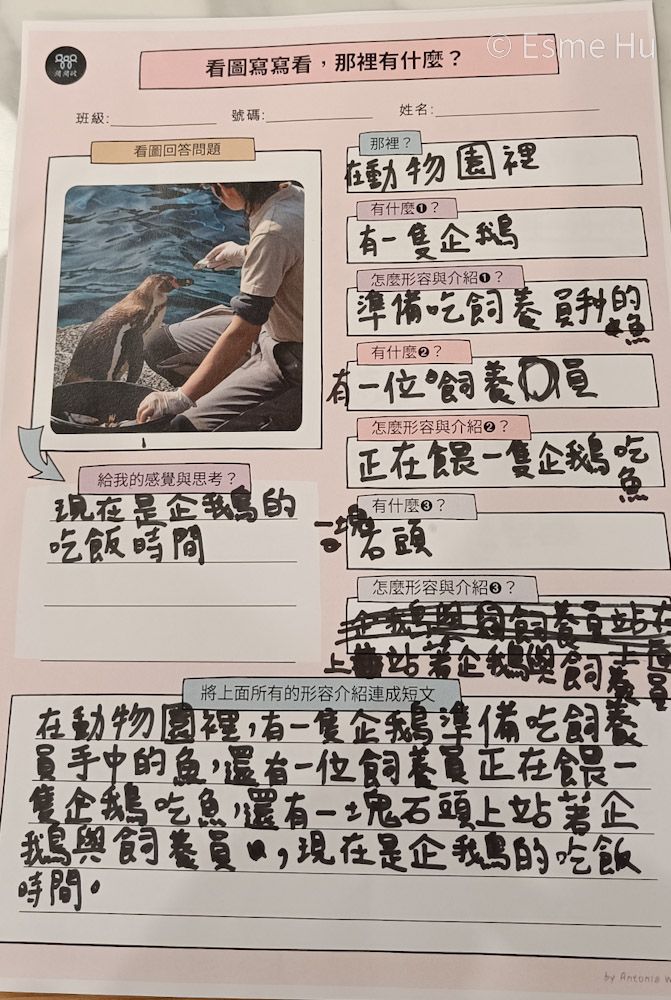 © Esme Hu
看圖寫寫看，那裡有什麼？
班級:
號碼:
姓名:
看圖回答問題
那裡？
在動物園裡
有什麼❶？
有一隻企鵝
怎麼形容與介紹❶？
準備吃飼養員手的
魚
有什麼❷？
有一位飼養員
怎麼形容與介紹❷？
正在餵一隻企鵝吃
魚
有什麼❸？
一塊
石頭
怎麼形容與介紹❸？
上站著企鵝與飼養員
給我的感覺與思考？
現在是企鵝的
吃飯時間
將上面所有的形容介紹連成短文
在動物園裡，有一隻企鵝準備吃飼養
員手中的魚，還有一位飼養員正在餵一
隻企鵝吃魚，還有一塊石頭上站著企
鵝與飼養員，現在是企鵝的吃飯
時間。
by Antonia W